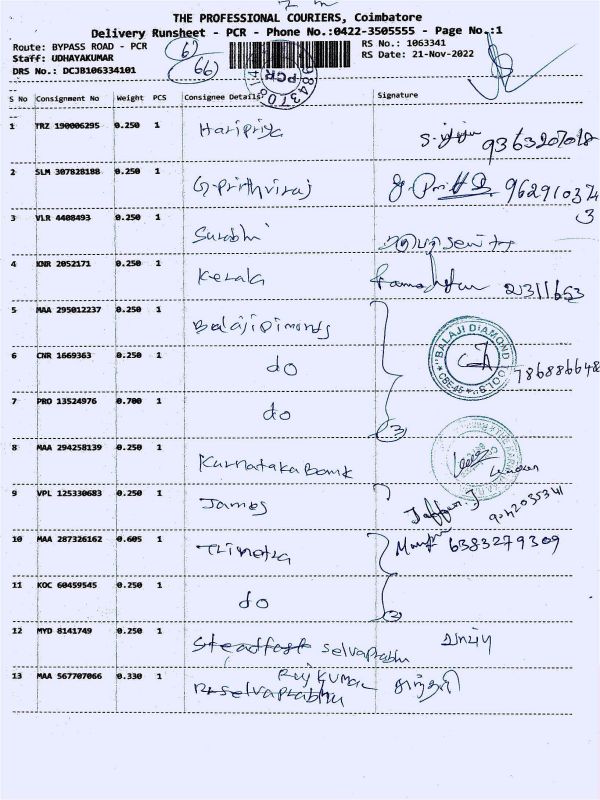 THE PROFESSIONAL COURIERS, Coimbatore
Delivery Runsheet - PCR - Phone No.:0422-3505555 - Page No.:1
Route: BYPASS ROAD - PCR RS No.: 1063341
Staff: UDHAYAKUMAR RS Date: 21-Nov-2022
DRS No.: DCJB106334101 66
PCR
S No Consignment No Weight PCS Consignee Details Signature
1 TRZ 190006295 0.250 1 Haripriya 9363207018
2 SLM 307828188 0.250 1 G. Prithviraj 9629103743
3 VLR 4408493 0.250 1 Surabhi
4 KNR 2052171 0.250 1 Kerala 2311653
5 MAA 295012237 0.250 1 Balaji Dimonds
BALAJI DIAMOND TOOLS * CBE-45 *
6 CNR 1669363 0.250 1 do 786886648
7 PRO 13524976 0.700 1 do (3)
8 MAA 294258139 0.250 1 Karnataka Bank
9 VPL 125330683 0.250 1 James Jaffer.J 9042035341
10 MAA 287326162 0.605 1 Trinetra 6383279309
11 KOC 60459545 0.250 1 do (2)
12 MYD 8141749 0.250 1 Steadfast Selvaprabhu
13 MAA 567707066 0.330 1 Rajkumar
R. Selvaprabhu